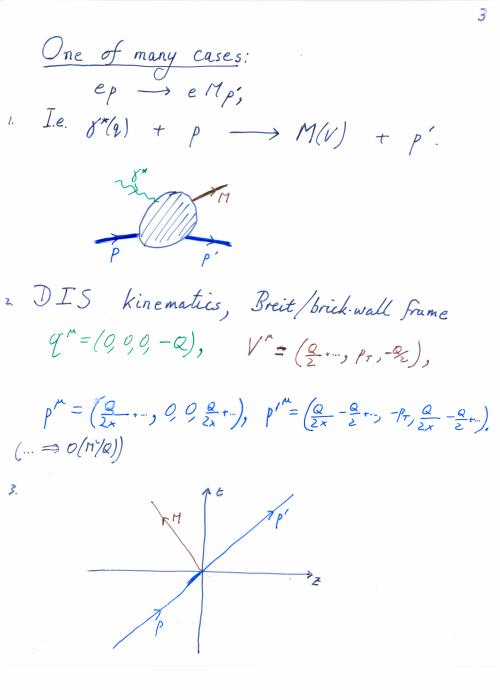 3
One of many cases:
ep ⟶ e M p′,
1. I.e. γ*(q) + p ⟶ M(V) + p′.
γ*
M
p
p′
2. DIS kinematics, Breit/brick-wall frame
q^μ = (0, 0, 0, -Q), V^μ = (Q/2 + ..., p_T, -Q/2),
p^μ = (Q/2x + ..., 0, 0, Q/2x + ...), p′^μ = (Q/2x - Q/2 + ..., -p_T, Q/2x - Q/2 + ...).
(... ⇒ O(M²/Q))
3.
t
M
p′
z
p